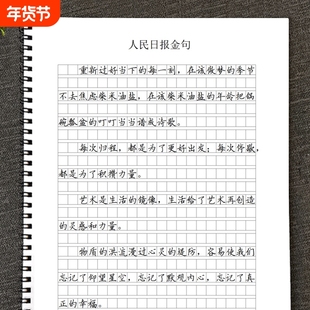 年货节
人民日报金句
重新过好当下的每一刻，在该做梦的季节
不去焦虑柴米油盐，在该柴米油盐的年龄把锅
碗瓢盆的叮叮当当谱成诗歌。
每次归程，都是为了更好出发；每次停歇，
都是为了积攒力量。
艺术是生活的镜像，生活给了艺术再创造
的灵感和力量。
物质的洪流漫过心灵的堤防，容易使我们
忘记了仰望星空，忘记了默观内心，忘记了真
正的幸福。